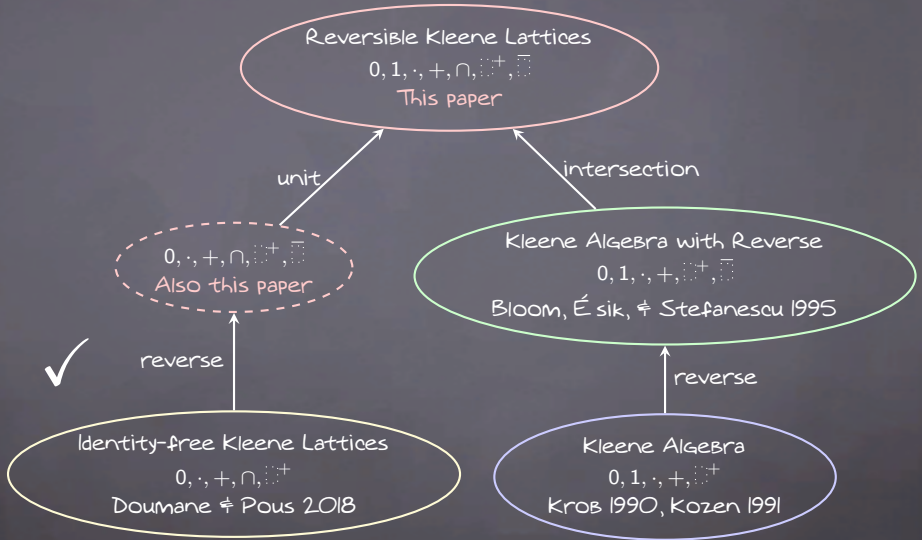 Reversible Kleene Lattices
0, 1, ·, +, ∩, ⬚⁺, ⬚̅
This paper
unit
intersection
0, ·, +, ∩, ⬚⁺, ⬚̅
Also this paper
Kleene Algebra with Reverse
0, 1, ·, +, ⬚⁺, ⬚̅
Bloom, É sik, & Stefanescu 1995
reverse
reverse
Identity-free Kleene Lattices
0, ·, +, ∩, ⬚⁺
Doumane & Pous 2018
Kleene Algebra
0, 1, ·, +, ⬚⁺
Krob 1990, Kozen 1991